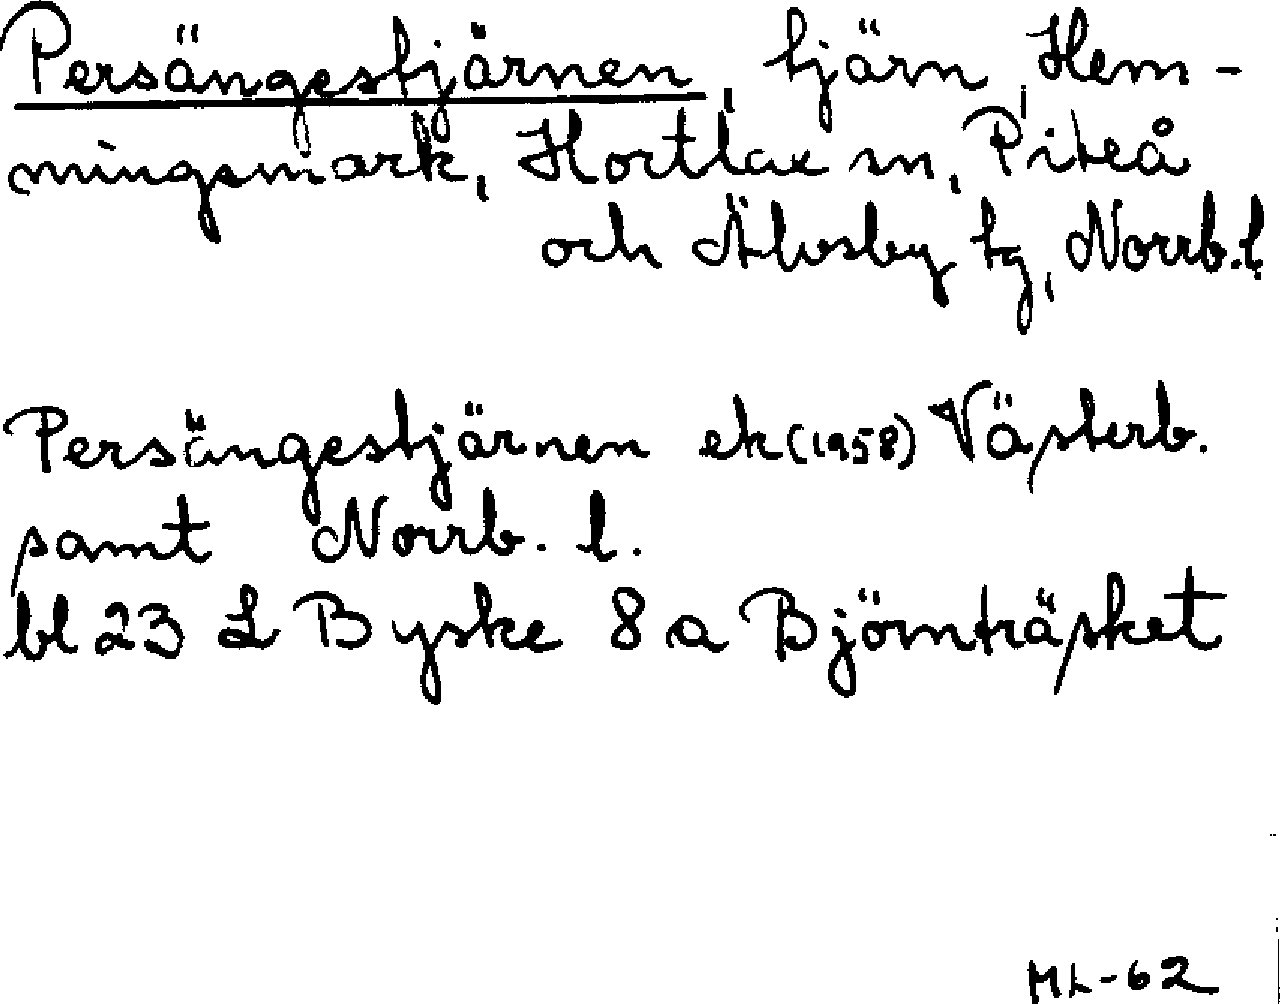 Persängestjärnen, tjärn, Hem-
mingsmark, Hortlax sn, Piteå
och Älvsby tg, Norrb. l.
Persängestjärnen ek (1958) Västerb.
samt Norrb. l.
bl 23 L Byske 8 a Björnträsket
ML-62